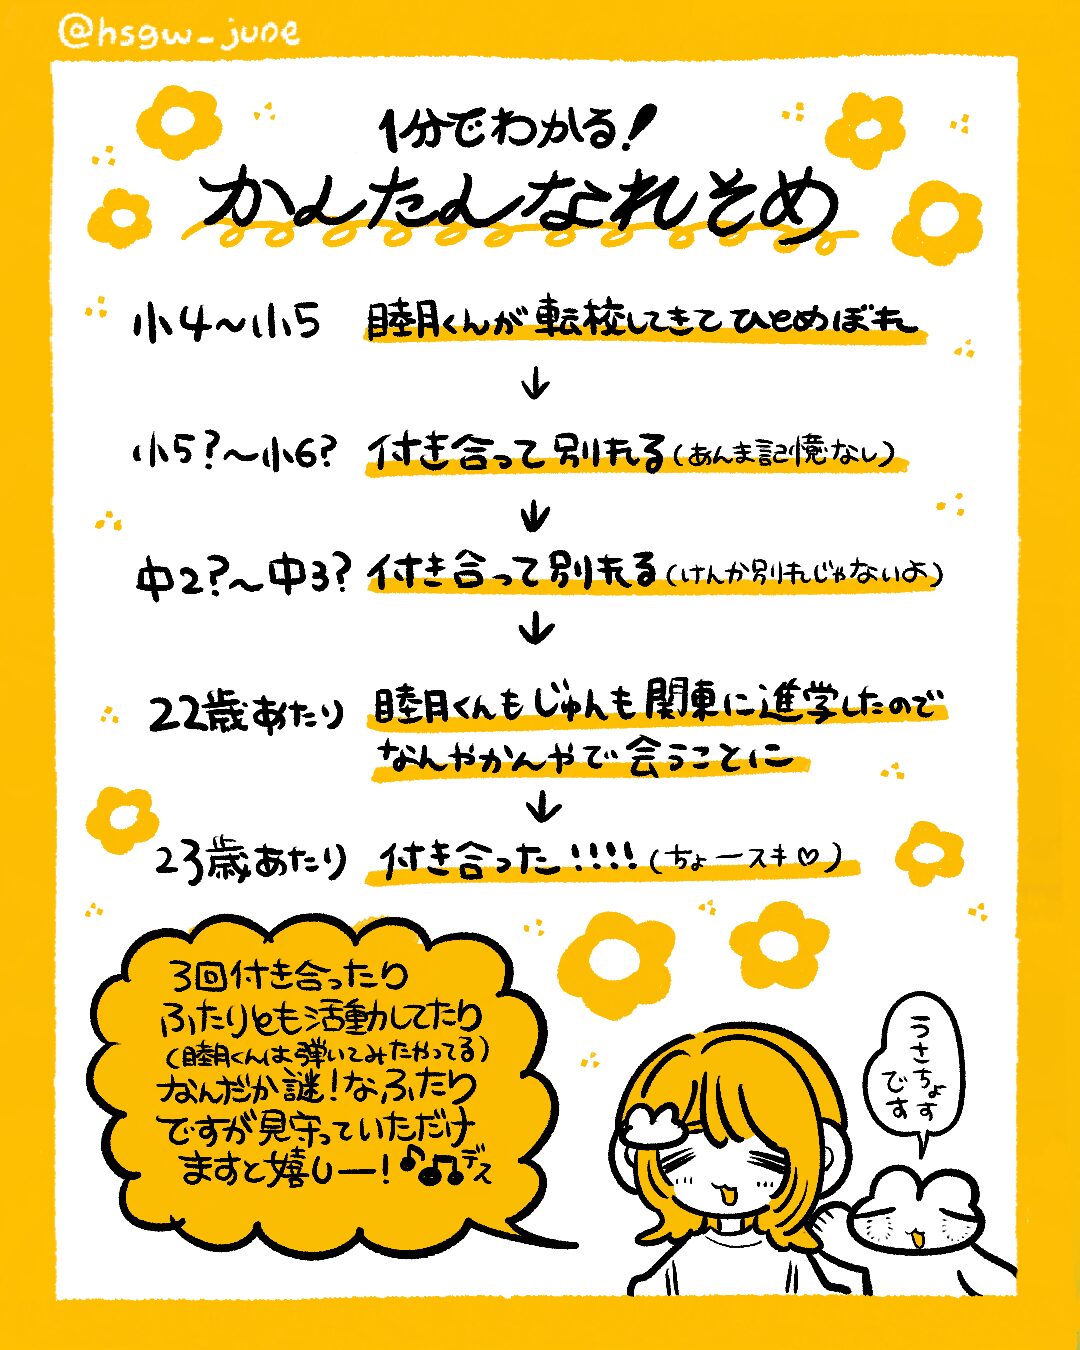 @hsgw_june
1分でわかる！
かんたんなれそめ
小4〜小5 睦月くんが転校してきてひとめぼれ
↓
小5?〜小6? 付き合って別れる(あんま記憶なし)
↓
中2?〜中3? 付き合って別れる(けんか別れじゃないよ)
↓
22歳あたり 睦月くんもじゅんも関東に進学したので
なんやかんやで会うことに
↓
23歳あたり 付き合った!!!!(ちょースキ♡)
3回付き合ったり
ふたりとも活動してたり
(睦月くんは弾いてみたやってる)
なんだか謎!なふたり
ですが見守っていただけ
ますと嬉しー!♪♫デス
うさちょす
です